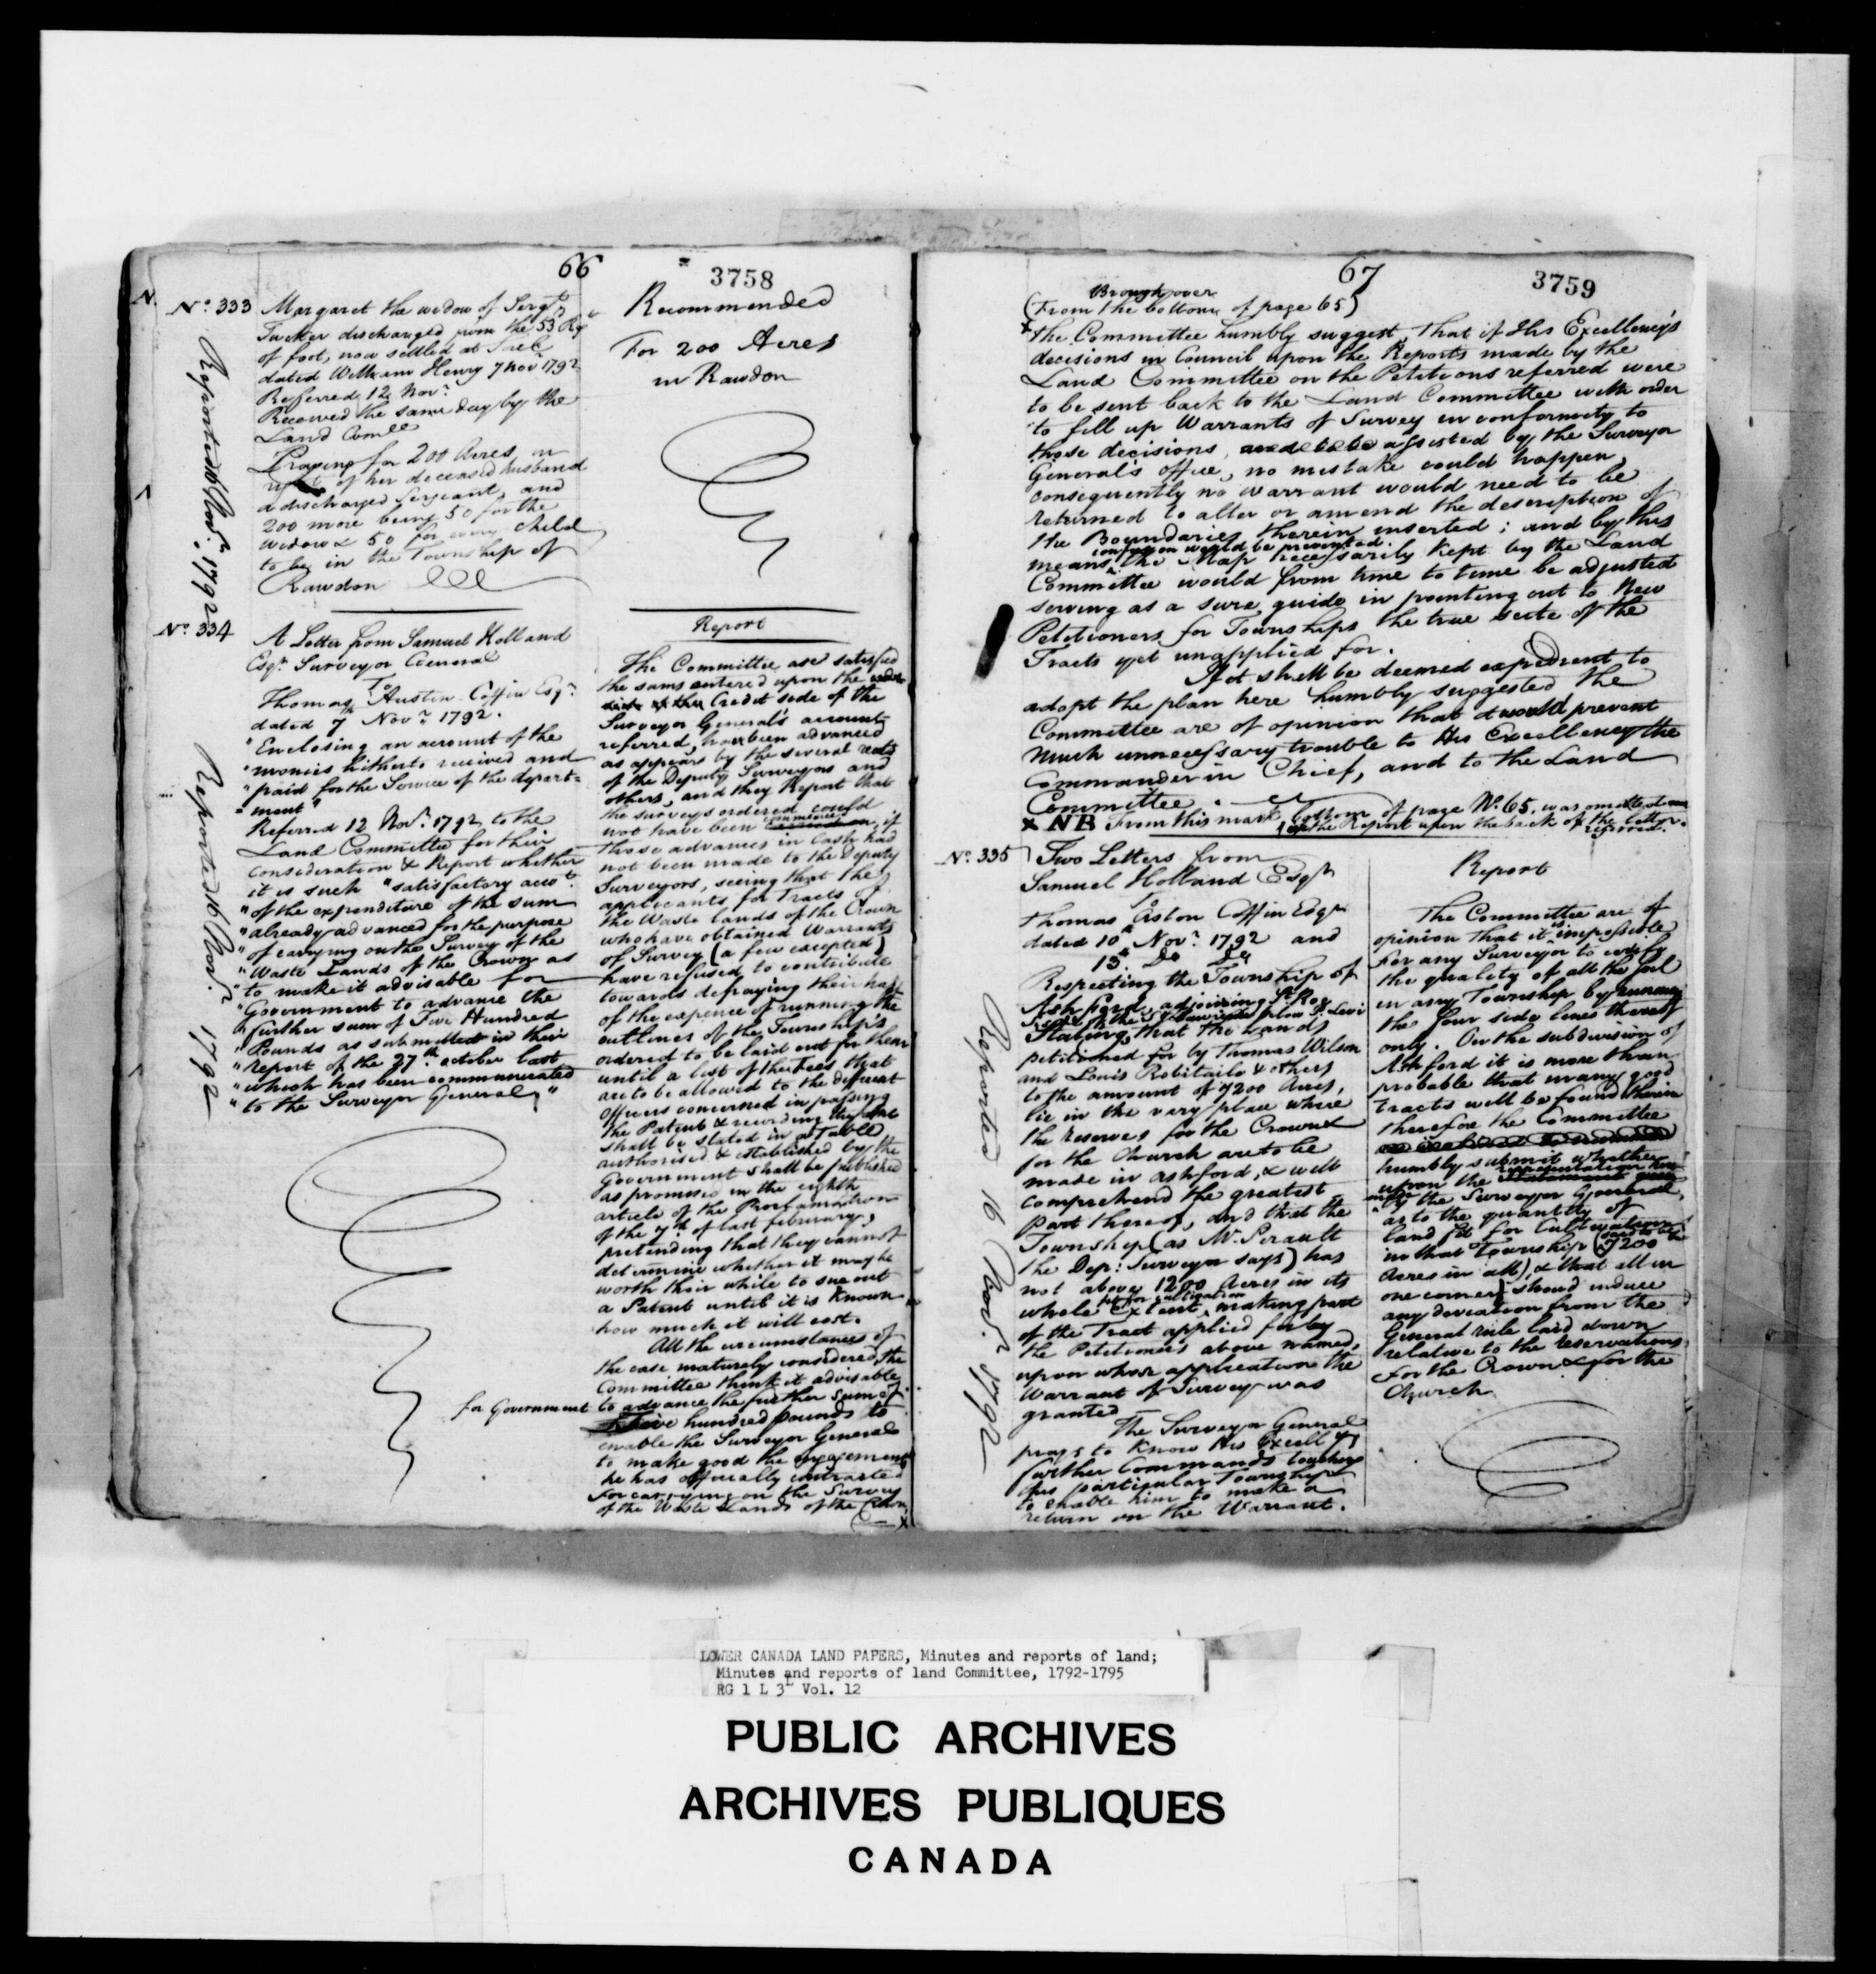 66
3758
No. 333
Margaret the widow of Sergt.
Tucker discharged from the 53 Rg
of foot, now settled at Sorel
dated William Henry 7 Novr 1792
Referred 12 Novr.
Received the same day by the
Land Comee
Praying for 200 Acres in
right of her deceased husband
a discharged Serjeant, and
200 more being 50 for the
widow & 50 for every child
to be in the Township of
Rawdon
Reported 16 Novr. 1792
Recommended
For 200 Acres
in Rawdon
No. 334
A Letter from Samuel Holland
Esqr. Surveyor General
To
Thomas Austin Coffin Esqr.
dated 7th Novr. 1792.
"Enclosing an account of the
"monies hitherto received and
"paid for the Service of the depart=
"ment"
Referred 12 Novr. 1792 to the
Land Committee for their
consideration & Report whether
it is such "satisfactory acct.
"of the expenditure of the sum
"already advanced for the purpose
"of carrying on the Survey of the
"Waste Lands of the Crown as
"to make it advisable for
"Government to advance the
"further sum of Five Hundred
"Pounds as submitted in their
"report of the 27th. october last
"which has been communicated
"to the Surveyor General,"
Reported 16 Novr. 1792
Report
The Committee are satisfied
the sums entered upon the
Credit side of the
Surveyor General's account
referred, have been advanced
as appears by the several
of the Deputy Surveyors and
others, and they Report that
the surveys ordered could
not have been commenced, if
those advances in Cash had
not been made to the Deputy
Surveyors, seeing that the
applicants for Tracts of
the Waste lands of the Crown
who have obtained Warrants
of Survey (a few excepted)
have refused to contribute
towards defraying their half
of the expence of running the
outlines of the Township's
ordered to be laid out for them
until a list of the Fees that
are to be allowed to the different
officers concerned in passing
the Patent & recording the same
shall be stated in a Table
authorised & established by the
Government shall be published
as promised in the eighth
article of the Proclamation
of the 7th. of last february,
pretending that they cannot
determine whether it may be
worth their while to sue out
a Patent until it is Known
how much it will cost.
All the circumstances of
the case maturely considered, the
Committee think it advisable
for Government to advance the further Sum of
Five hundred pounds to
enable the Surveyor General
to make good the engagements
he has officially contracted
for carrying on the Survey
of the Waste Lands of the Crown
67
3759
Brought over
(From the bottom of page 65)
x the Committee humbly suggest, That if His Excellency's
decisions in Council upon the Reports made by the
Land Committee on the Petitions referred were
to be sent back to the Land Committee with order
to fill up Warrants of Survey in conformity to
those decisions, and to be assisted by the Surveyor
General's office, no mistake could happen,
consequently no Warrant would need to be
returned to alter or amend the description of
the Boundaries therein inserted; and by this
confusion would be prevented
means the Map necessarily Kept by the Land
Committee would from time to time be adjusted
serving as a sure guide in pointing out to New
Petitioners for Townships the true scite of the
Tracts yet unapplied for.
If it shall be deemed expedient to
adopt the plan here humbly suggested the
Committee are of opinion that it would prevent
much unnecessary trouble to His Excellency the
Commander in Chief, and to the Land
Committee.
x NB From this mark bottom of page No. 65, was omitted
in the Report upon the back of the letter
referred.
No. 335
Two Letters from
Samuel Holland Esqr
To
Thomas Aston Coffin Esqr
dated 10th Novr. 1792 and
13th Do Do
Respecting the Township of
Ashford, adjoining St. Roc
Stating, that the Lands
petitioned for by Thomas Wilson
and Louis Robitaile & others
to the amount of 7200 Acres,
lie in the very place where
the reserves for the Crown &
for the Church are to be
made in Ashford, & will
comprehend the greatest
part thereof, and that the
Township (as Mr. Perault
the Dep: Surveyor says) has
not above 1200 Acres in its
fit for cultivation
whole Extent, making part
of the Tract applied for by
the Petitioners above named,
upon whose application the
Warrant of Survey was
granted
The Surveyor General
prays to Know His Excelly's
further Commands touching
this particular Township
to enable him to make a
return on the Warrant.
Reported 16 Novr. 1792
Report
The Committee are of
opinion that it is impossible
for any Surveyor to certify
the quality of all the soil
in any Township by running
the four side lines thereof
only. On the subdivision of
Ashford it is more than
probable that many good
tracts will be found therein
therefore the Committee
humbly submit whether
upon the representation
made by the Surveyor General,
as to the quantity of
land fit for Cultivation
in that Township (said to be 7200
Acres in all), & that all in
one corner) should induce
any deviation from the
General rule laid down
relative to the reservations
for the Crown & for the
Church
LOWER CANADA LAND PAPERS, Minutes and reports of land;
Minutes and reports of land Committee, 1792-1795
RG 1 L 3L Vol. 12
PUBLIC ARCHIVES
ARCHIVES PUBLIQUES
CANADA